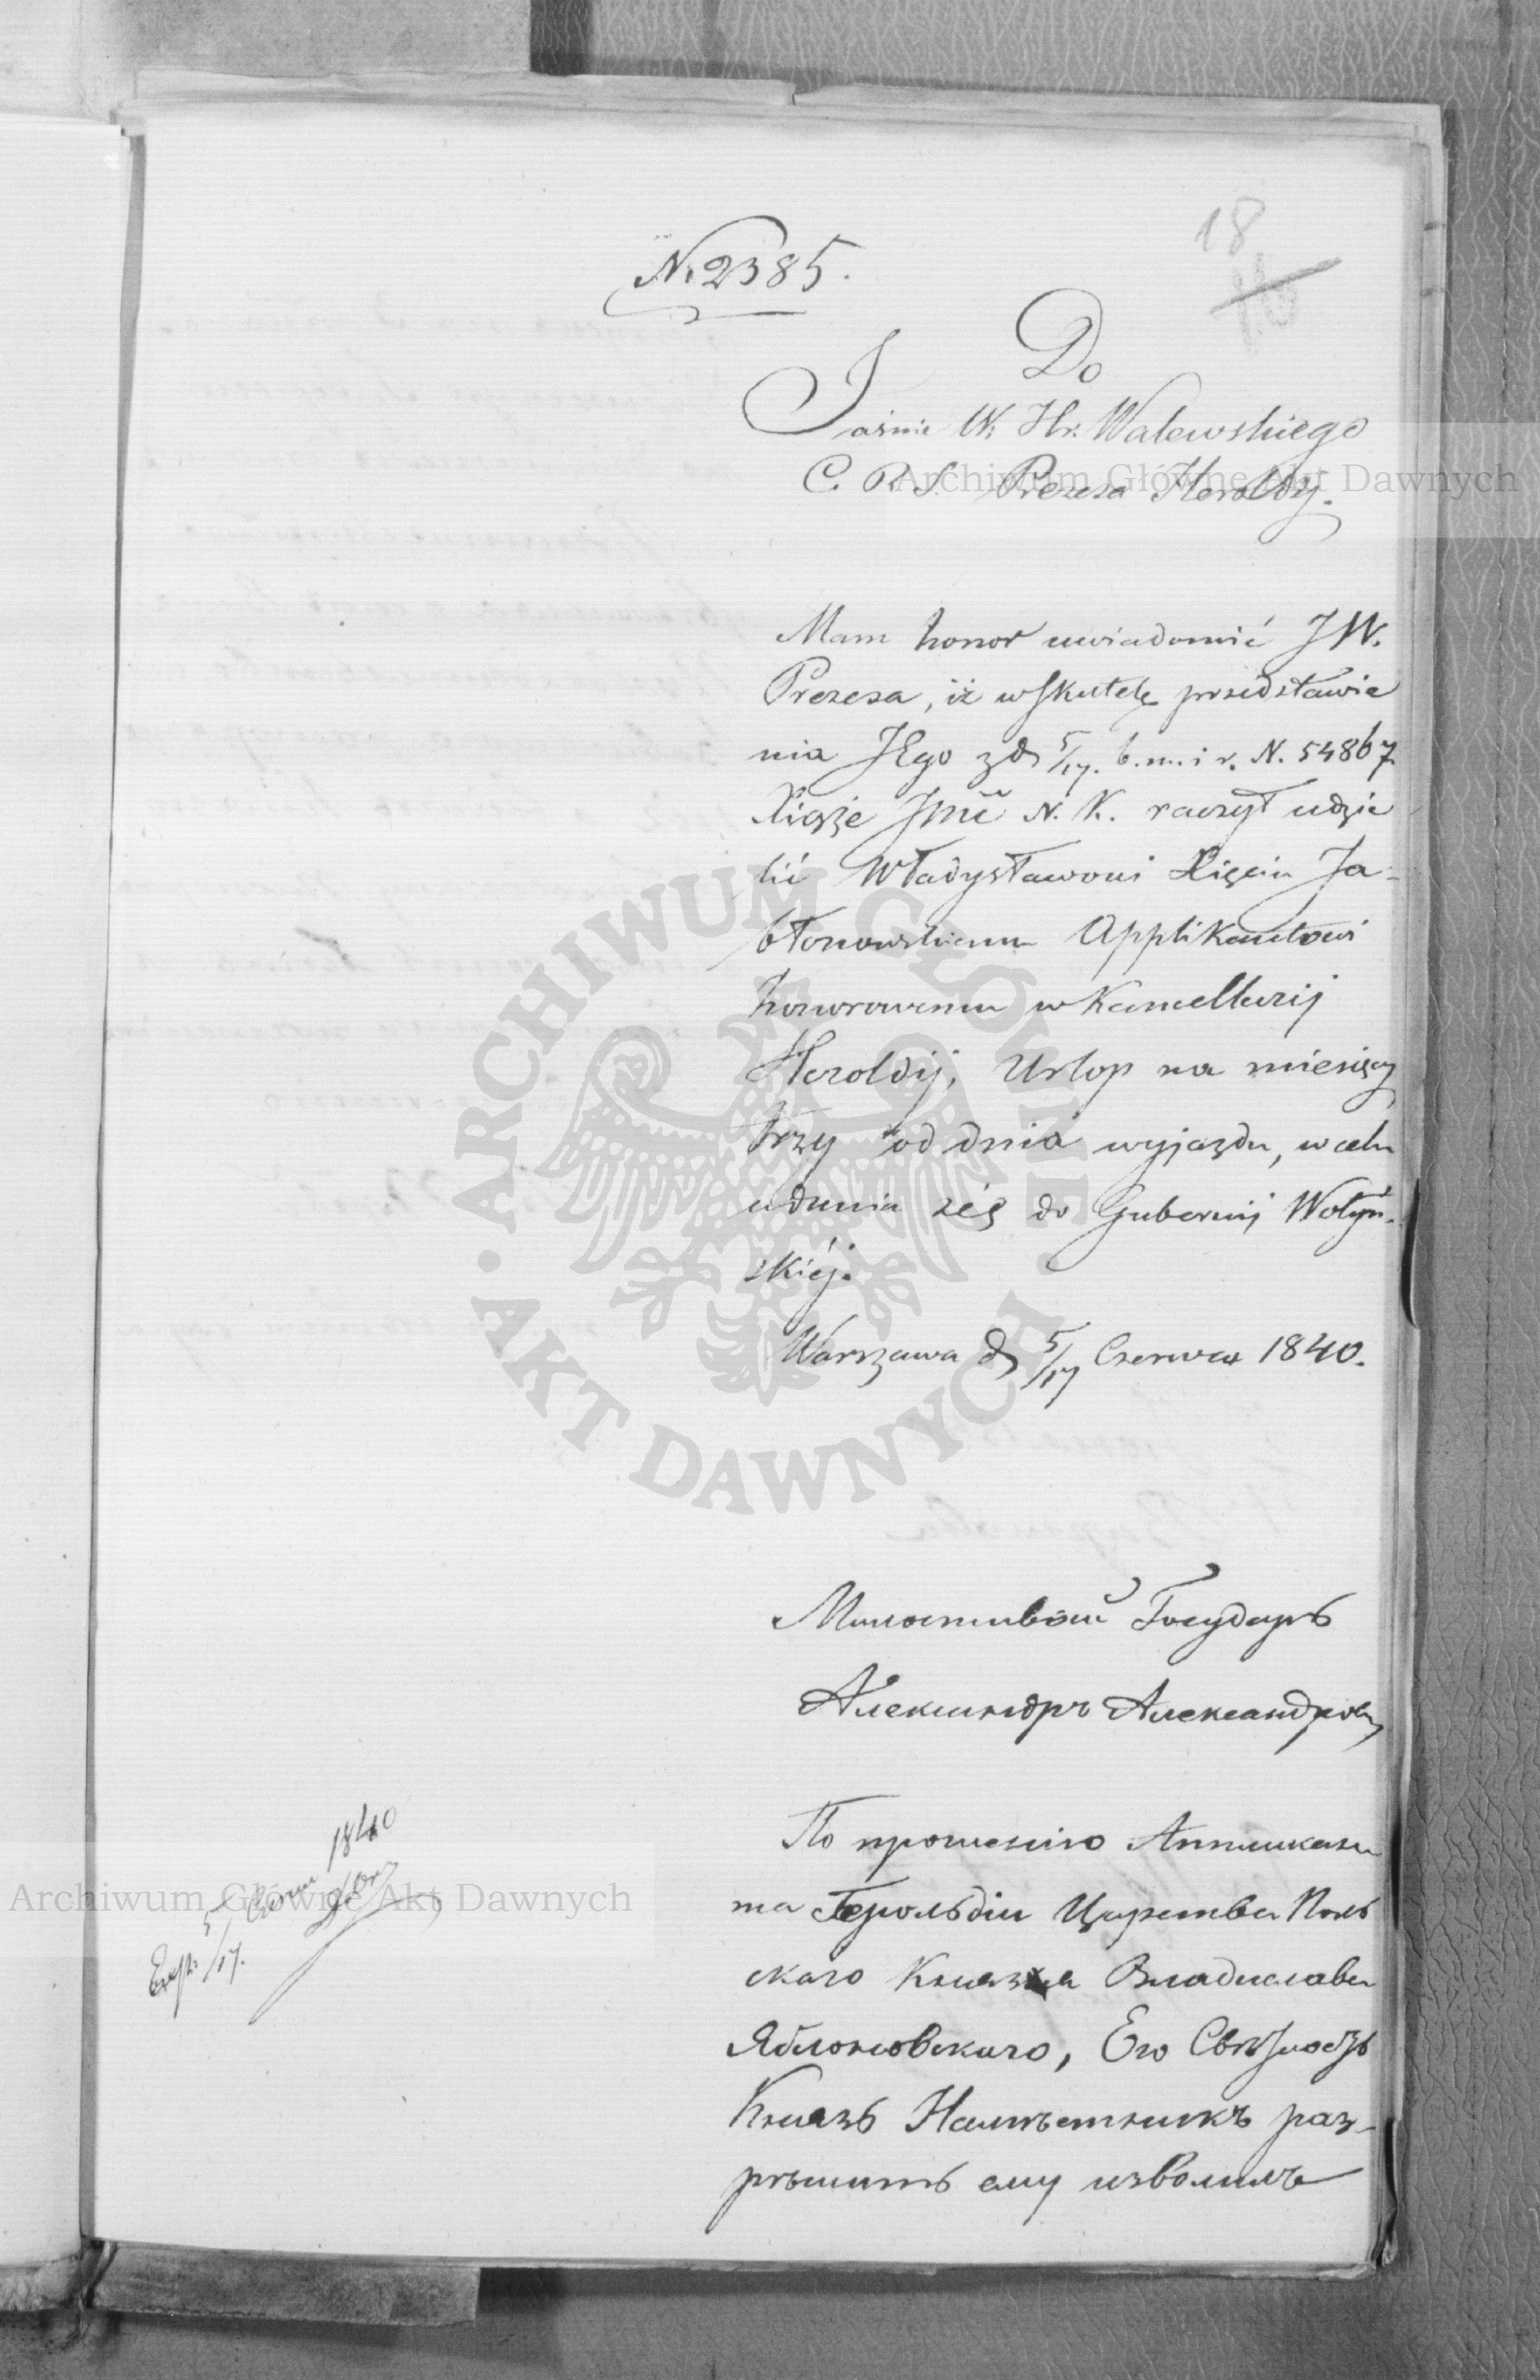 18
N. 2385.
Do
Jaśnie W. Hr. Walewskiego
C. R. S. Prezesa Heroldy.
Mam honor uwiadomić JW.
Prezesa, iż wskutek przedstawie
nia JEgo z d. 5/17. b. m. i r. N. 54867
Xiąże Jmć N. K. raczył udzie
lić Władysławowi Xięciu Ja-
błonowskiemu Applikantowi
honorowemu w Kancellarij
Heroldij, Urlop na miesięcy
trzy od dnia wyjazdu, w celu
udania się do Gubernij Wołyń-
skiéj.
Warszawa d. 5/17 Czerwca 1840.
Милостивый Государь
Александръ Александрович
По прошенію Аппликан
та Герольдіи Царства Поль
скаго Князя Владислава
Яблоновскаго, Его Свѣтлость
Князь Намѣстникъ раз-
рѣшить ему изволилъ
Exp. 5/17. Czerw 1840
Archiwum Główne Akt Dawnych
ARCHIWUM GŁÓWNE AKT DAWNYCH
Archiwum Główne Akt Dawnych